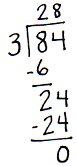 28
3 84
-6
24
-24
0